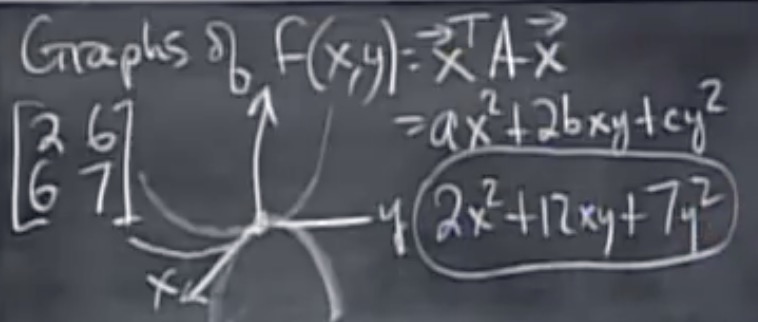 Graphs of f(x,y) = x⃗ᵀ A x⃗
= ax² + 2bxy + cy²
[2 6
6 7]
y
2x² + 12xy + 7y²
x